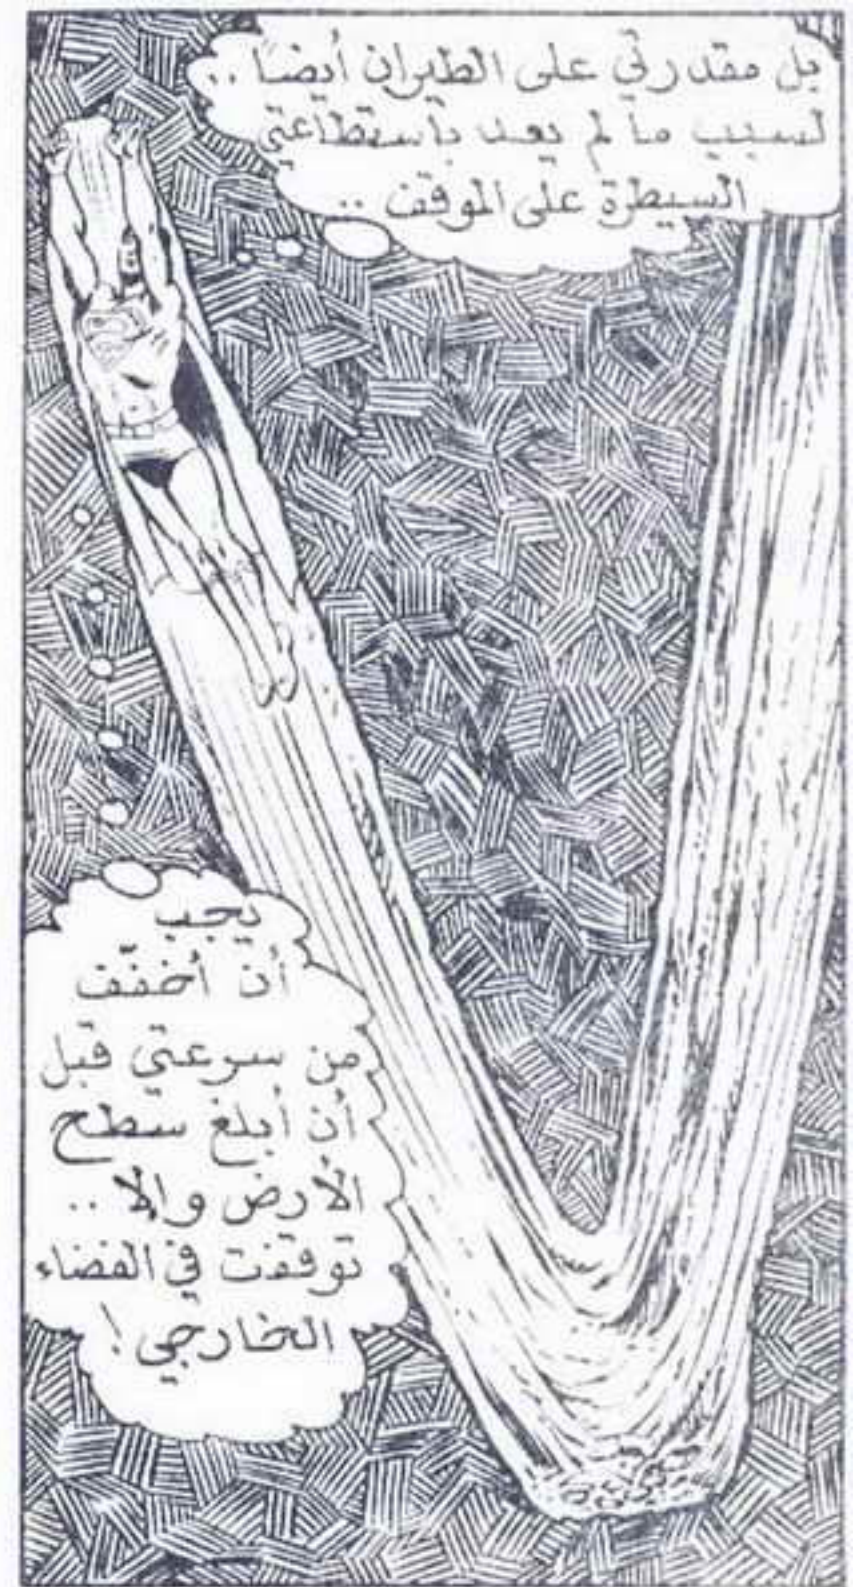 بل مقدرتي على الطيران أيضاً ..
لسبب ما لم يعد باستطاعتي
السيطرة على الموقف ..
يجب
أن أخفّف
من سرعتي قبل
أن أبلغ سطح
الأرض وإلا ..
توقفت في الفضاء
الخارجي !